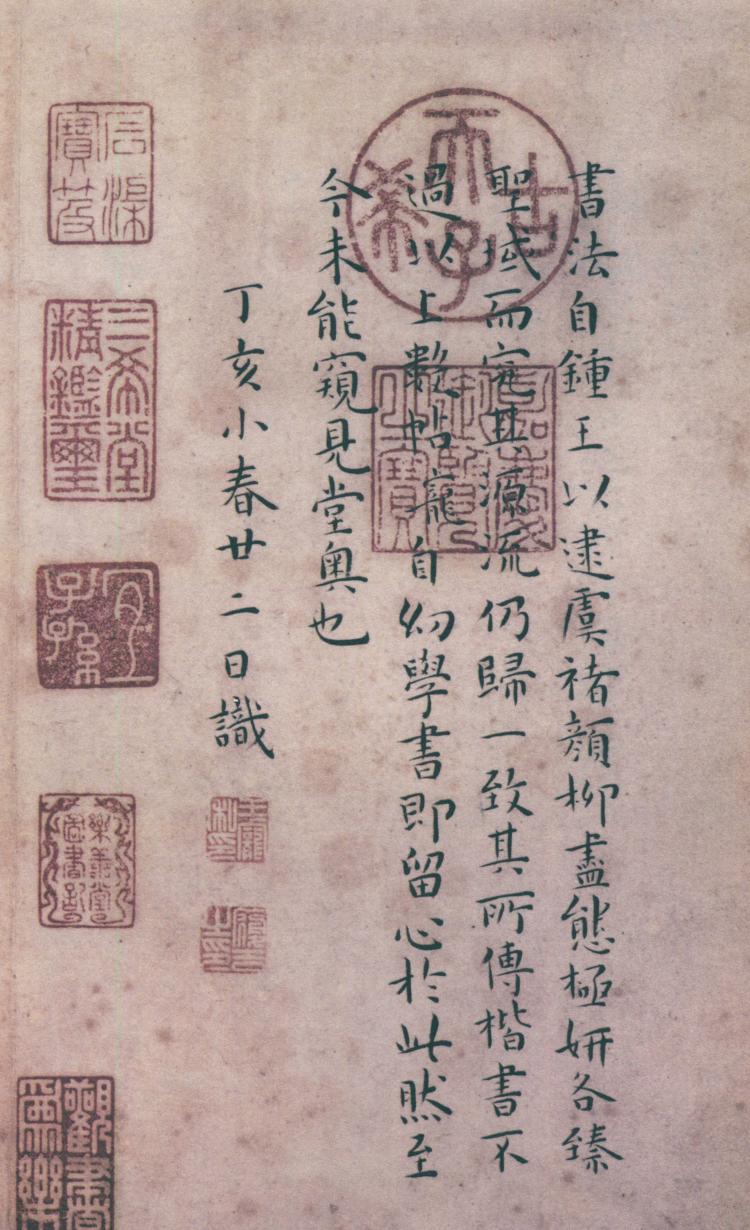 書法自鍾王以逮虞褚顏柳盡態極妍各臻
聖域而究其源流仍歸一致其所傳楷書不
過以上數帖寵自幼學書即留心於此然至
今未能窺見堂奧也
丁亥小春廿二日識
古希天子
壽
之寶
王寵
私印
履吉
之印
信
寶
三希堂
精鑑璽
宜
子孫
樂善堂
圖書記